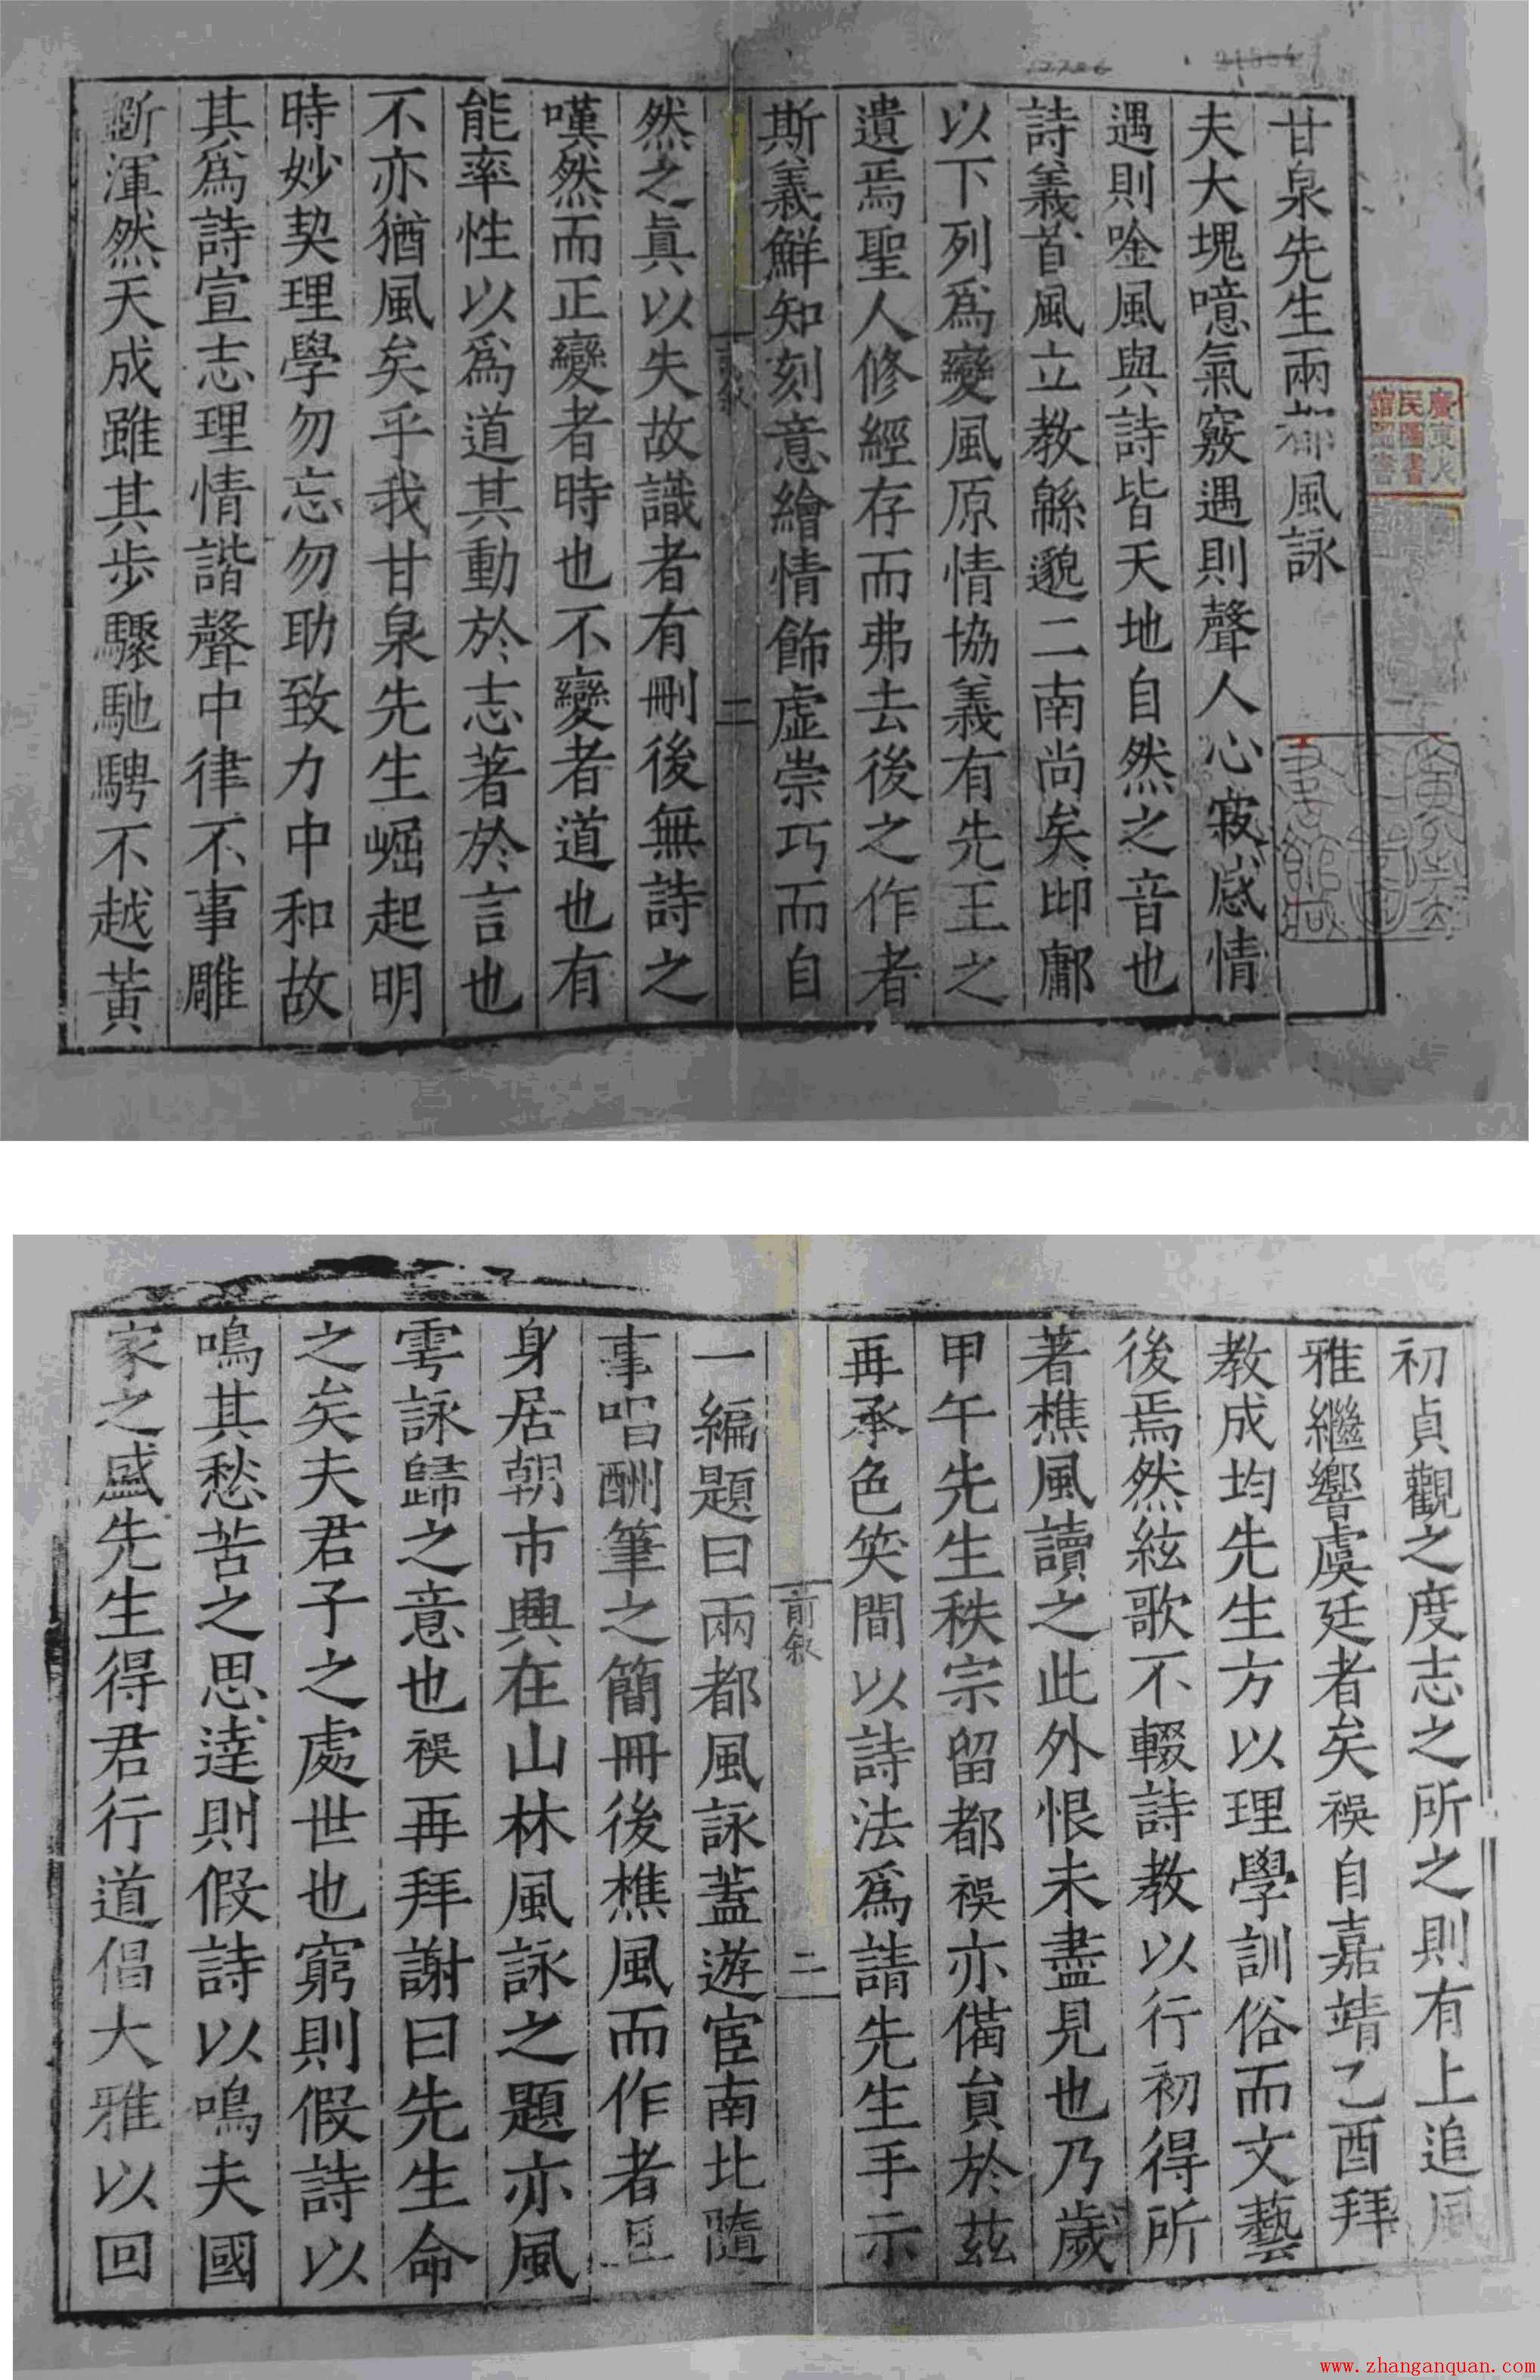 甘泉先生兩都風詠
夫大塊噫氣竅遇則聲人心寂感情
遇則唫風與詩皆天地自然之音也
詩義首風立教緜邈二南尚矣邶鄘
以下列爲變風原情協義有先王之
遺焉聖人修經存而弗去後之作者
斯義鮮知刻意繪情飾虛崇巧而自
前叙
二
然之眞以失故識者有刪後無詩之
嘆然而正變者時也不變者道也有
能率性以爲道其動於志著於言也
不亦猶風矣乎我甘泉先生崛起明
時妙契理學勿忘勿助致力中和故
其爲詩宣志理情諧聲中律不事雕
斵渾然天成雖其步驟馳騁不越黃
初貞觀之度志之所之則有上追風
雅繼響虞廷者矣䙡自嘉靖乙酉拜
教成均先生方以理學訓俗而文藝
後焉然絃歌不輟詩教以行初得所
著樵風讀之此外恨未盡見也乃歲
甲午先生秩宗留都䙡亦備貟於茲
再承色笑間以詩法爲請先生手示
前叙
二
一編題曰兩都風詠蓋遊宦南北隨
事唱酬筆之簡冊後樵風而作者且
身居朝市興在山林風詠之題亦風
雩詠歸之意也䙡再拜謝曰先生命
之矣夫君子之處世也窮則假詩以
鳴其愁苦之思達則假詩以鳴夫國
家之盛先生得君行道倡大雅以回
廣東人
民圖書
館藏書
www.zhanganquan.com